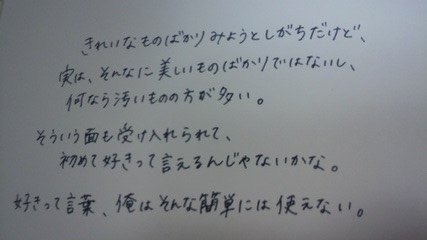 きれいなものばかりみようとしがちだけど、
実は、そんなに美しいものばかりではないし、
何なら汚いものの方が多い。
そういう面も受け入れられて、
初めて好きって言えるんじゃないかな。
好きって言葉、俺はそんな簡単には使えない。